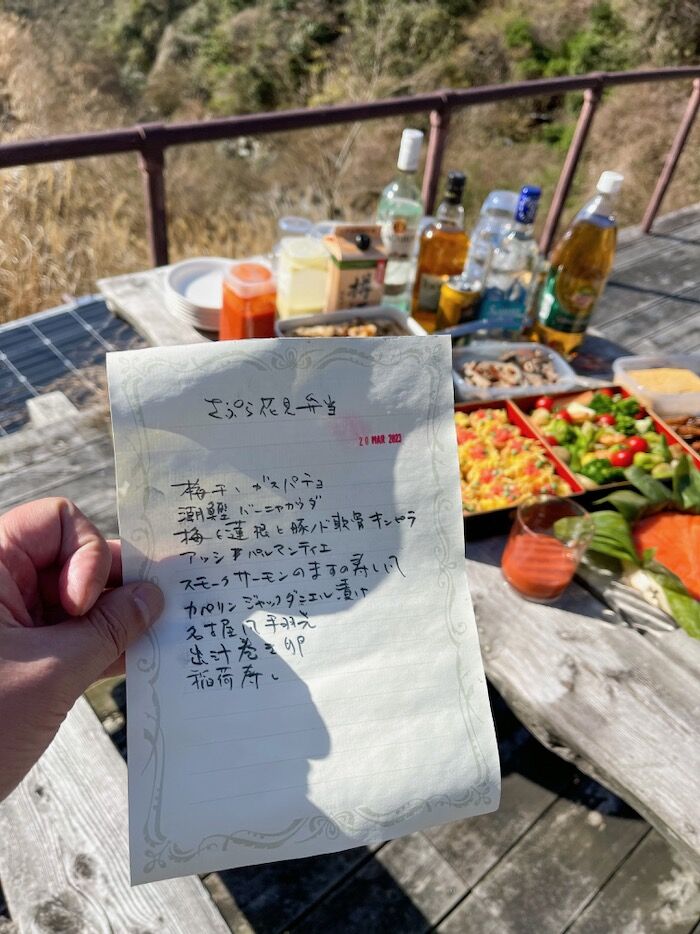 花見弁当
20 MAR 2023
梅干しガスパチョ
潮鰹バーニャカウダ
梅と蓮根と豚ノド軟骨キンピラ
アッシ パルマンティエ
スモークサーモンのますの寿し風
カペリンジャックダニエル漬け
名古屋風手羽先
出汁巻き卵
稲荷寿し